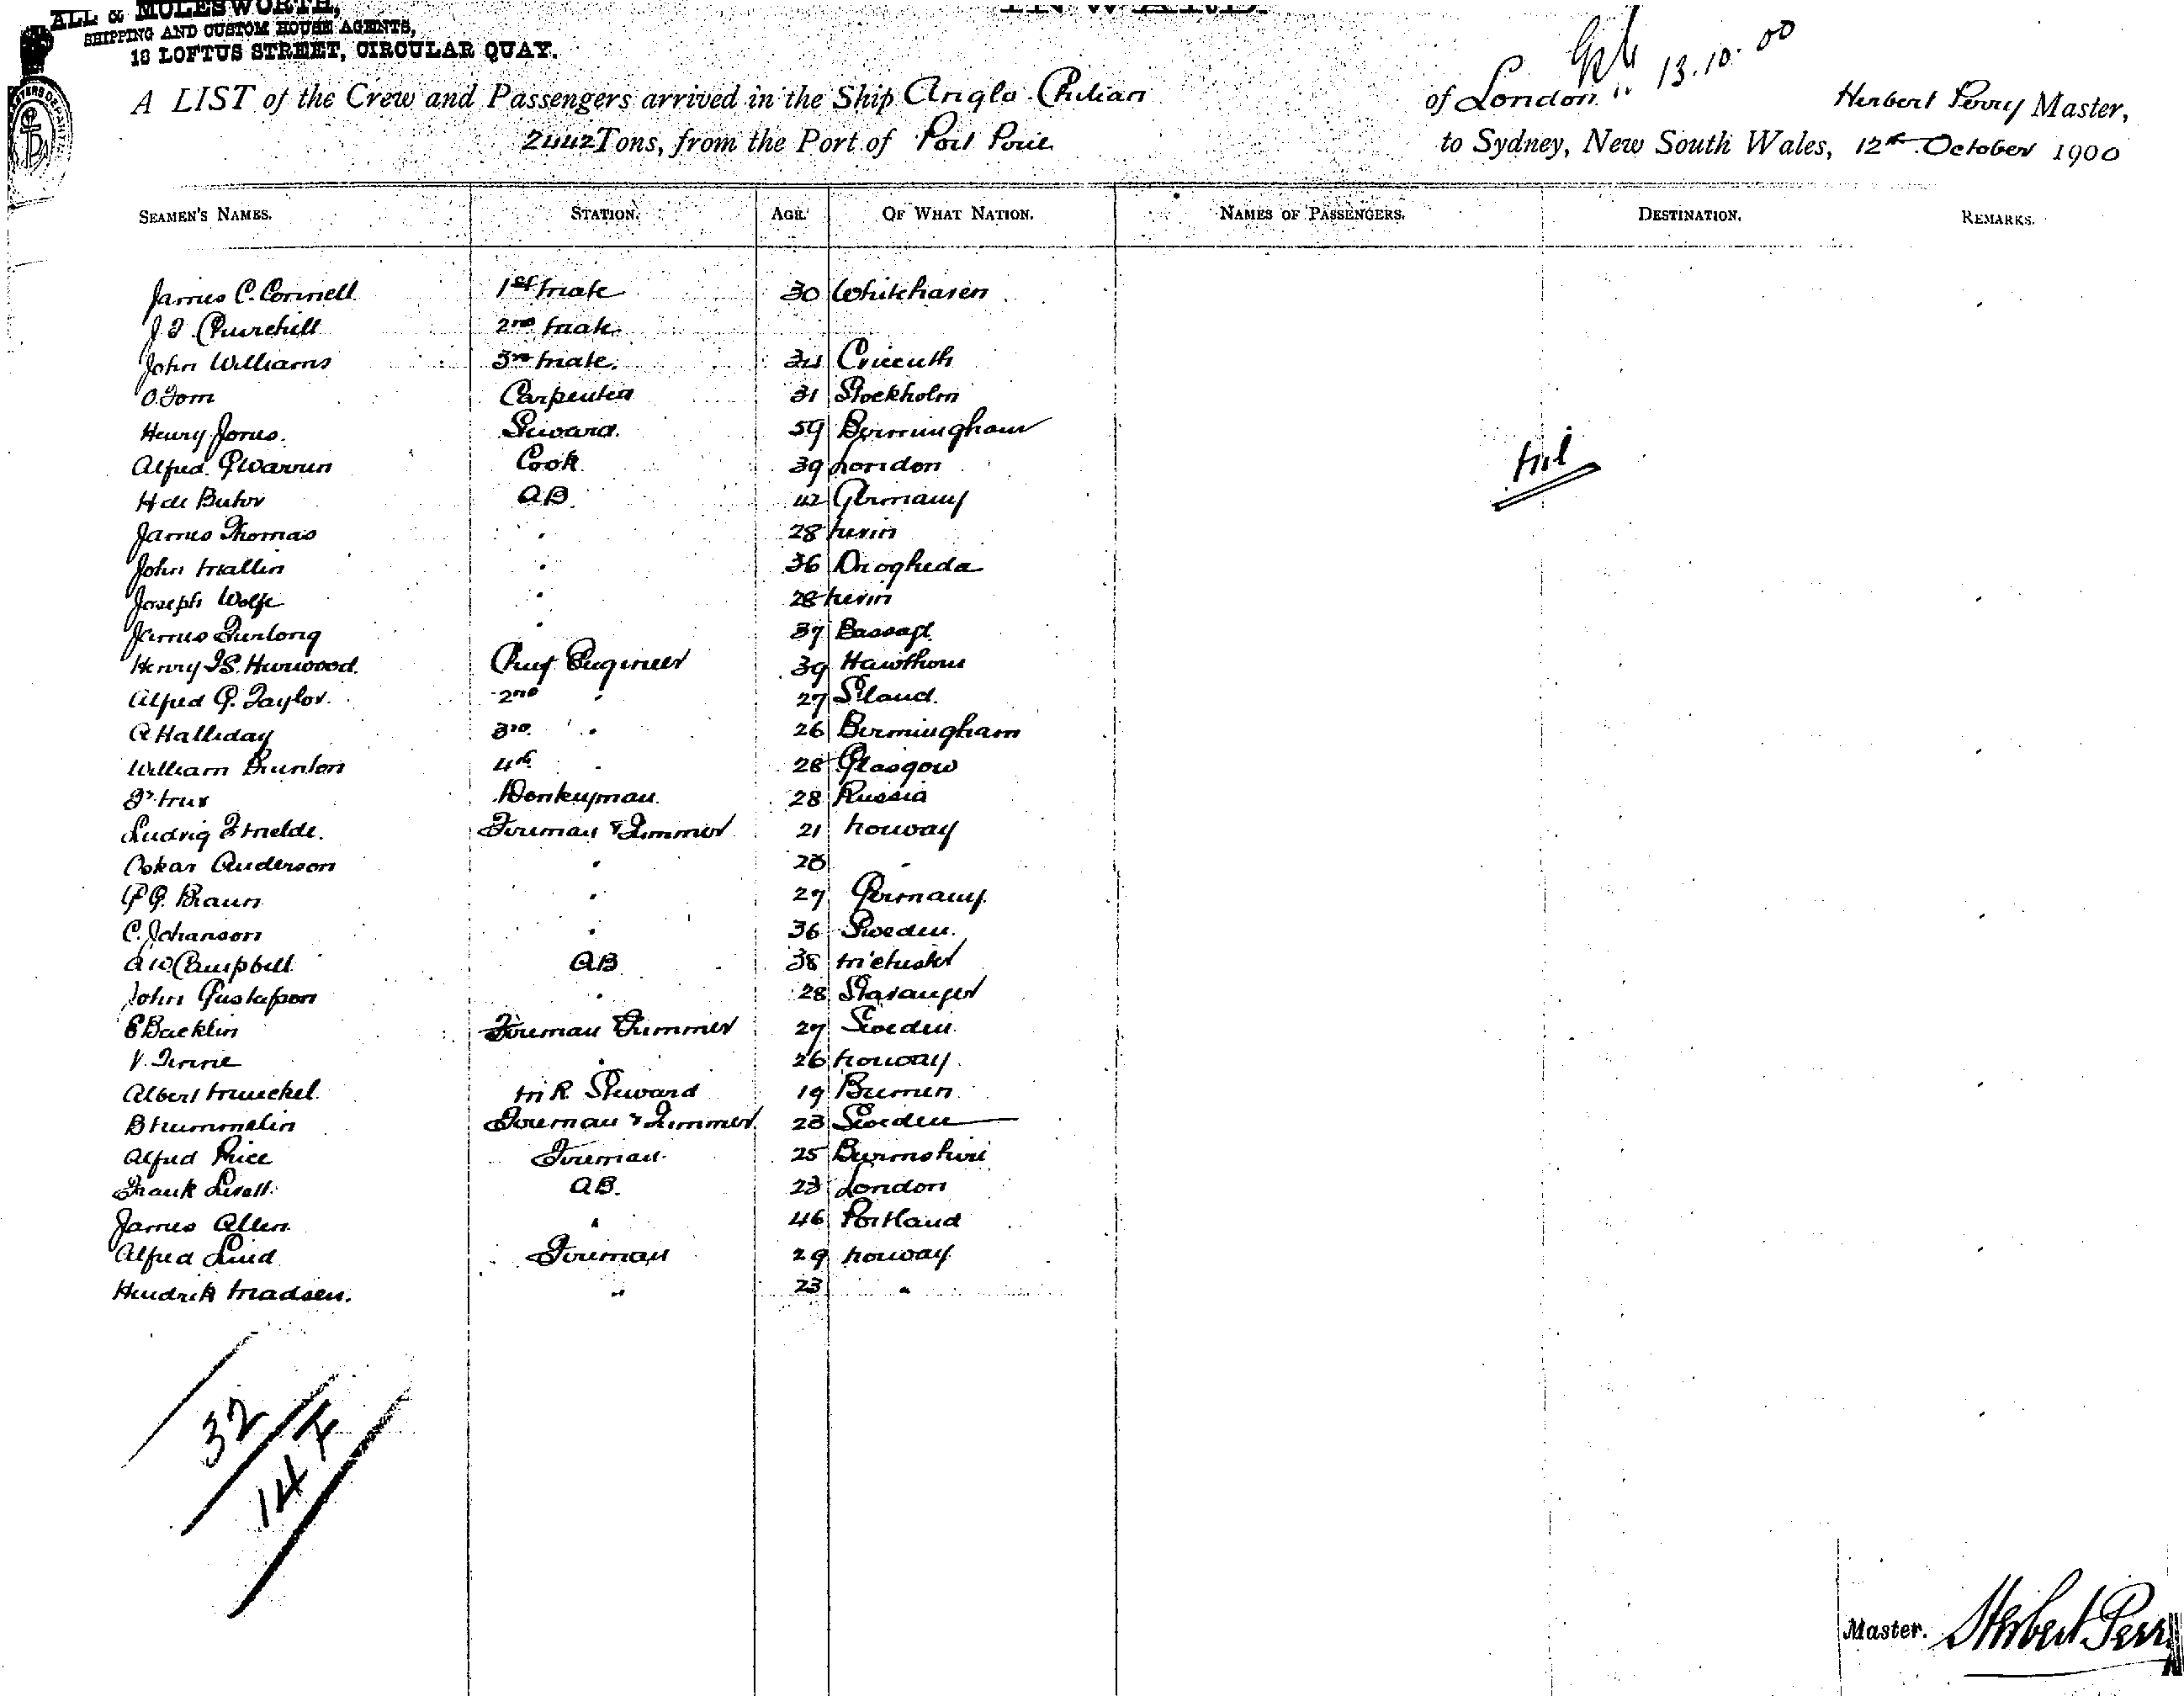 ALL & MOLESWORTH,
SHIPPING AND CUSTOM HOUSE AGENTS,
18 LOFTUS STREET, CIRCULAR QUAY.
INWARD.
13.10.00
A LIST of the Crew and Passengers arrived in the Ship Anglo Chilian of London Herbert Perry Master,
2442 Tons, from the Port of Port Pirie to Sydney, New South Wales, 12th October 1900
SEAMEN'S NAMES. STATION. AGE. OF WHAT NATION. NAMES OF PASSENGERS. DESTINATION. REMARKS.
James C. Connell 1st Mate 30 Whitehaven
J. Churchill 2nd Mate
John Williams 3rd Mate 34 Criccuth
O. Tom Carpenter 31 Stockholm
Henry Jones. Steward. 59 Birmingham
Alfred Warren Cook 39 London
Nil
H de Buhr AB 42 Germany
James Thomas " 28 Nevin
John Mallin " 36 Drogheda
Joseph Wolfe " 28 Nevin
James Furlong " 37
Henry Hurwood. Chief Engineer 39 Hawthorne
Alfred G. Taylor. 2nd " 27
A Halliday 3rd " 26 Birmingham
William Brunton 4th " 28 Glasgow
Donkeyman. 28 Russia
Ludvig Fireman & Trimmer 21 Norway
Oskar Anderson " 28 "
G. Braun " 27 Germany.
C. Johanson " 36 Sweden.
A W. Campbell AB 38 M'chester
John Gustafson " 28 Stavanger
E Backlin Fireman Trimmer 27 Sweden
V. " 26 Norway
Albert M R Steward 19 Bremen
Fireman & Trimmer. 23 Sweden
Alfred Price Fireman. 25
Frank AB. 23 London
James Allen " 46 Portland
Alfred Lund Fireman 29 Norway
Hendrik Madsen. " 23 "
32
14 F
Master. Herbert Perry